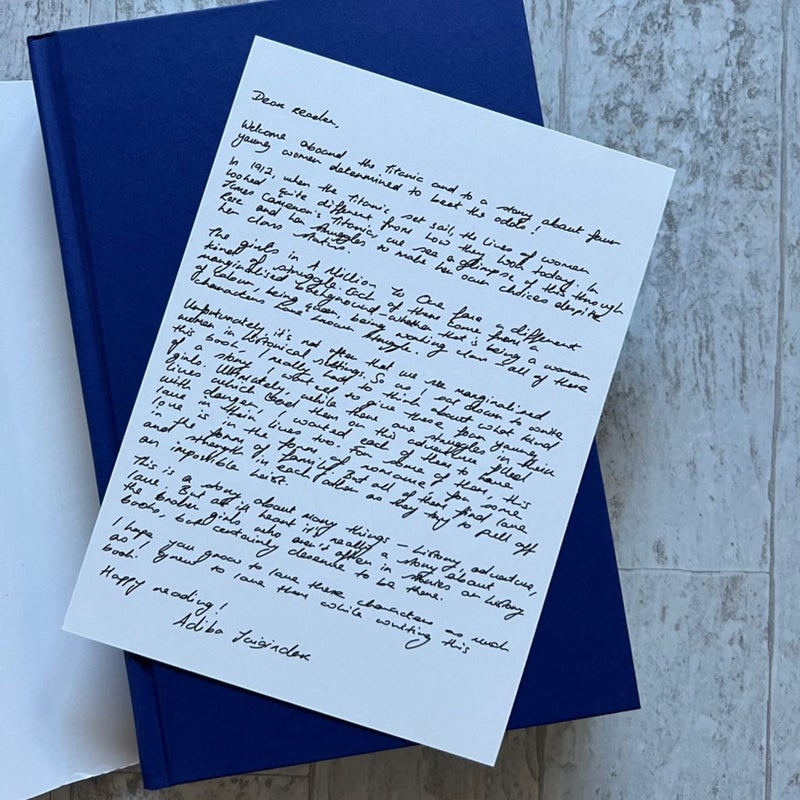 Dear reader,
Welcome aboard the Titanic and to a story about four
young women determined to beat the odds!
In 1912, when the Titanic set sail, the lives of women
looked quite different from how they look today. In
James Cameron's Titanic, we see a glimpse of this through
Rose and her struggles to make her own choices despite
her class status.
The girls in A Million to One face a different
kind of struggle. Each of them come from a
marginalised background – whether that's being a woman
of colour, being queer, being working class – all of these
characters have known struggle.
Unfortunately, it's not often that we see marginalised
women in historical settings. So as I sat down to write
this book, I really had to think about what kind
of a story I wanted to give these four young
girls. Ultimately, while there are struggles in their
lives which lead them on this adventure filled
with danger, I wanted each of them to have
love in their lives too. For some of them, this
love is in the form of romance, for some
in the form of family. But all of them find love
and strength in each other as they try to pull off
an impossible heist.
This is a story about many things – history, adventure,
love. But at its heart it's really a story about
the broken girls who aren't often in stories or history
books, but certainly deserve to be there.
I hope you grow to love these characters as much
as I grew to love them while writing this
book.
Happy reading!
Adiba Jaigirdar